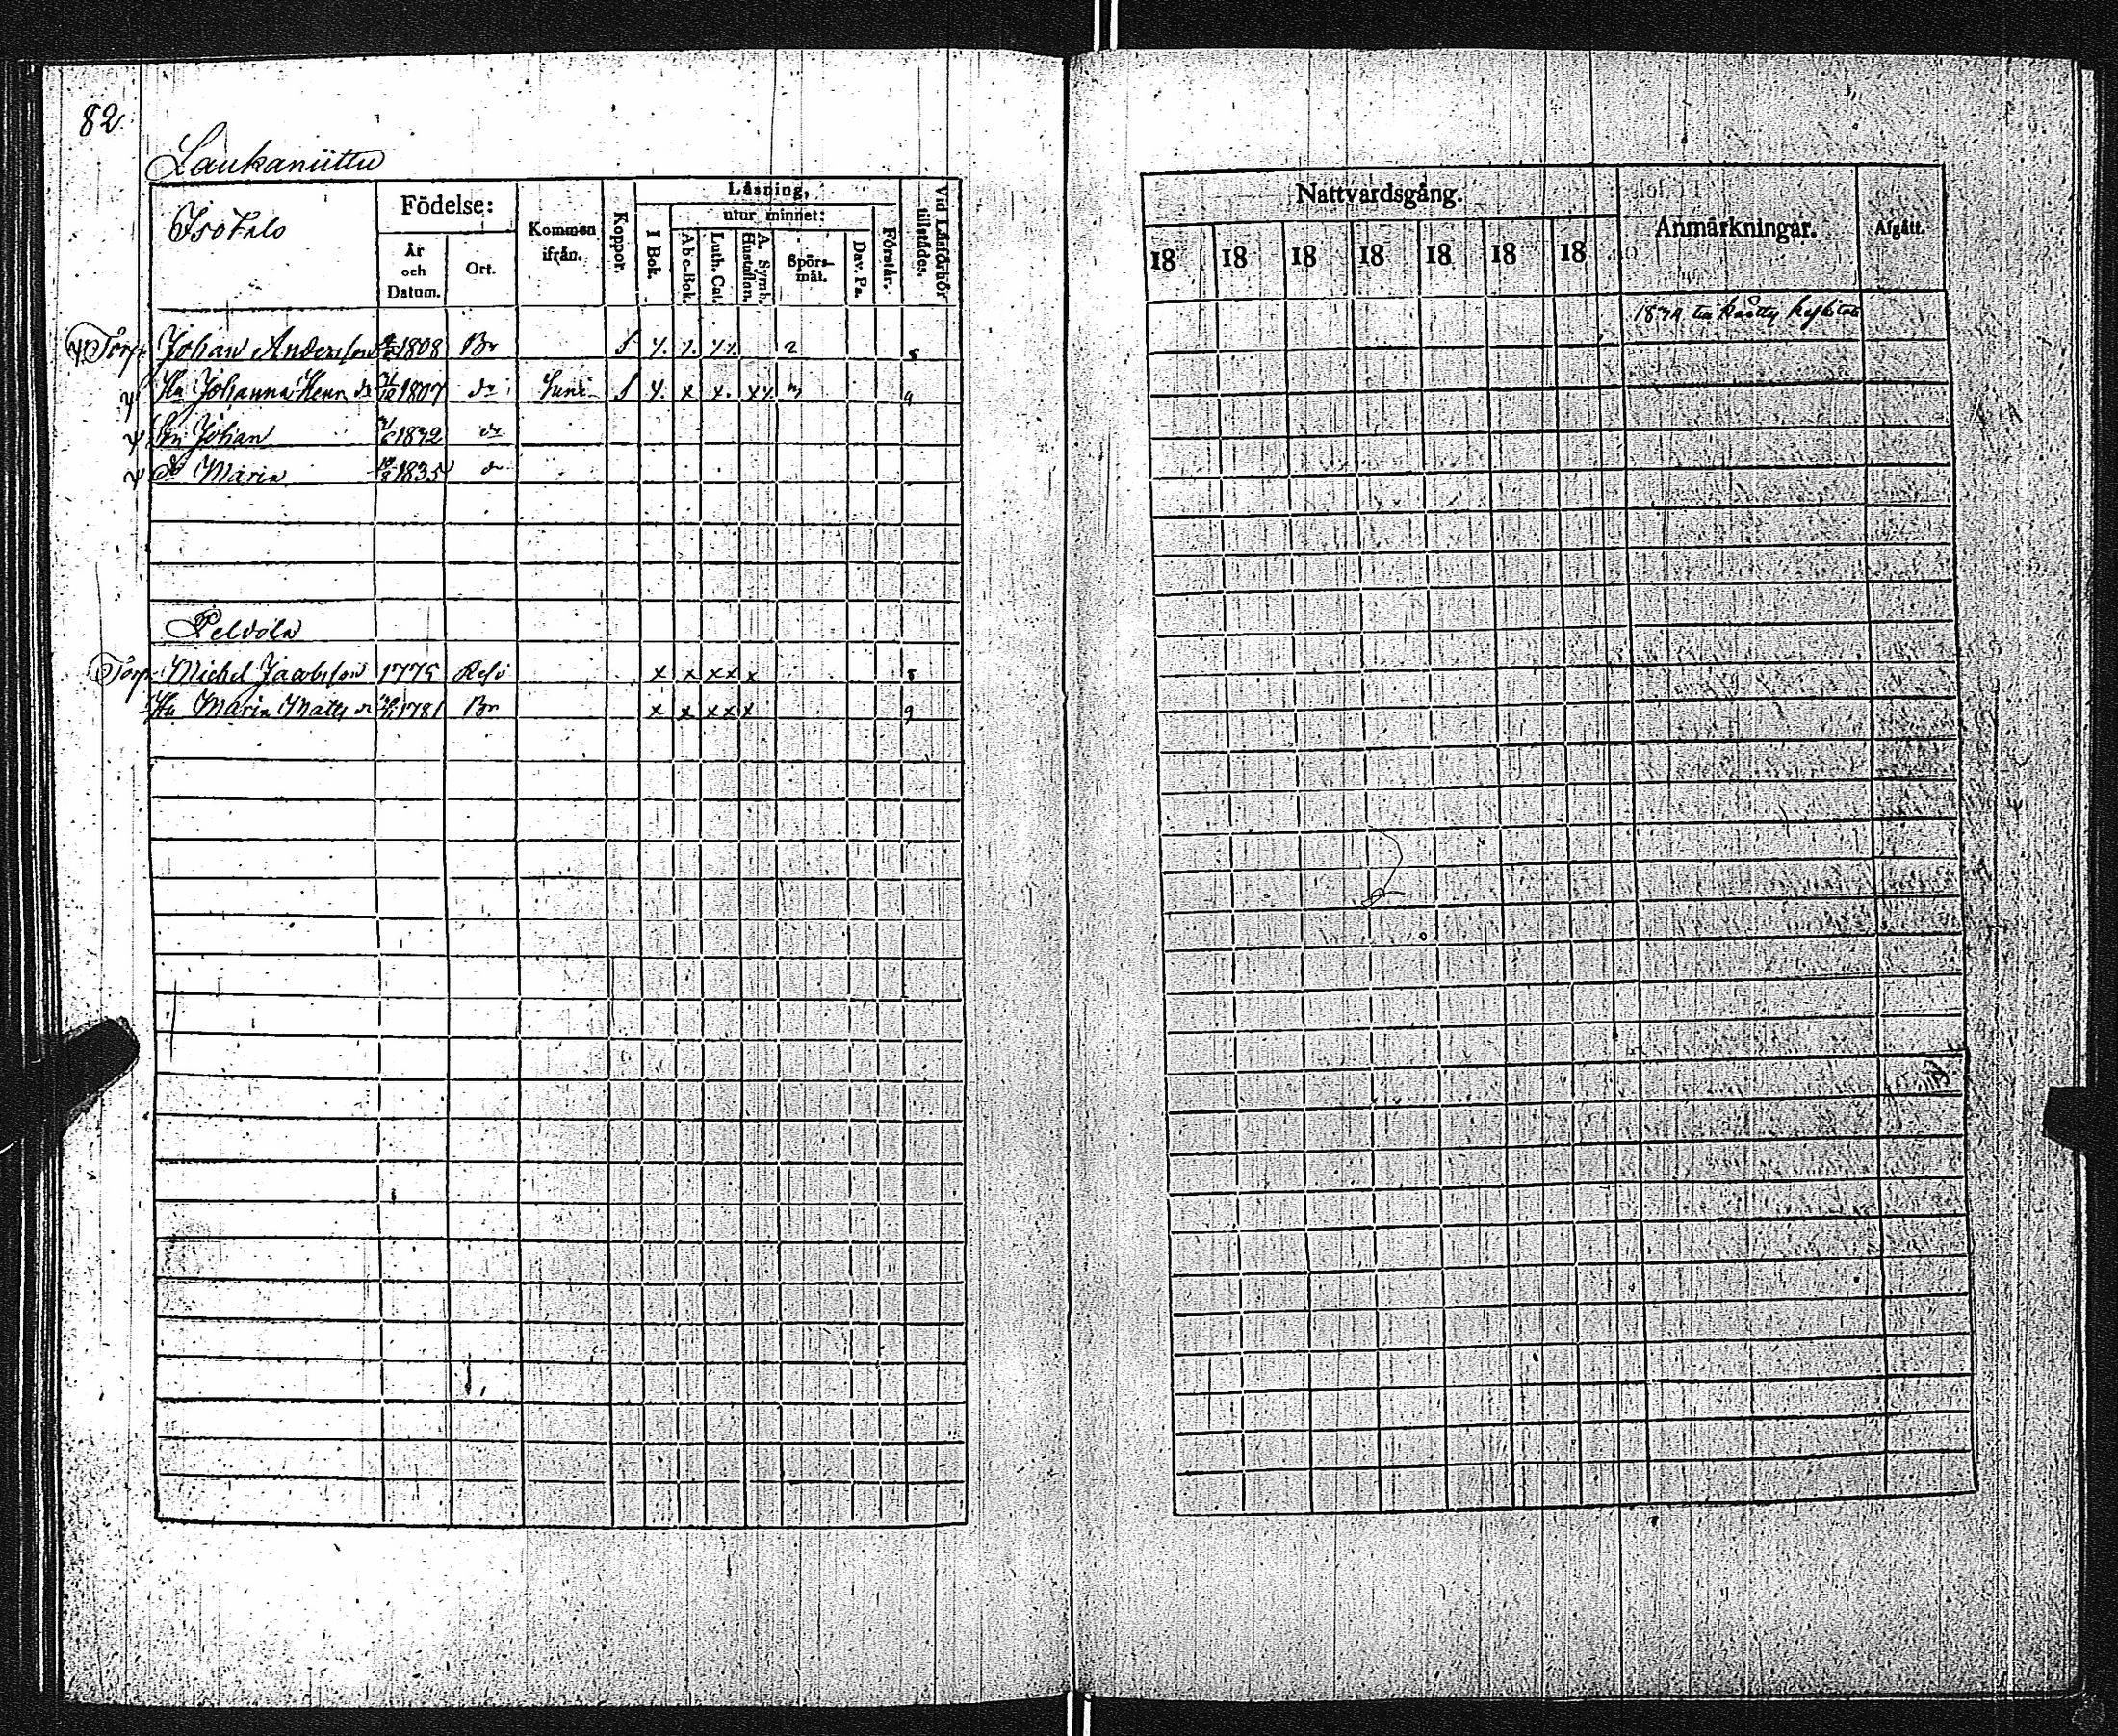 82.
Laukaniittu
Isotalo
Födelse:
År och Datum.
Ort.
Kommen ifrån.
Koppor.
Läsning,
I Bok.
utur minnet:
Abc-Bok.
Luth. Cat.
A. Symb. Hustaflan.
Spörsmål.
Dav. Ps.
Förstår.
Vid Läsförhör tillstädes.
Nattvardsgång.
18 18 18 18 18 18 18
Anmärkningar.
Afgått.
Torp. Johan Andersson 1808 Br
Hu Johanna Henr dr 1807 do
Sn Johan 1832 do
Dr Maria 1835 do
Peldola
Torp. Michel Jacobsson 1775
Hu Maria Matts dr 1781 Br